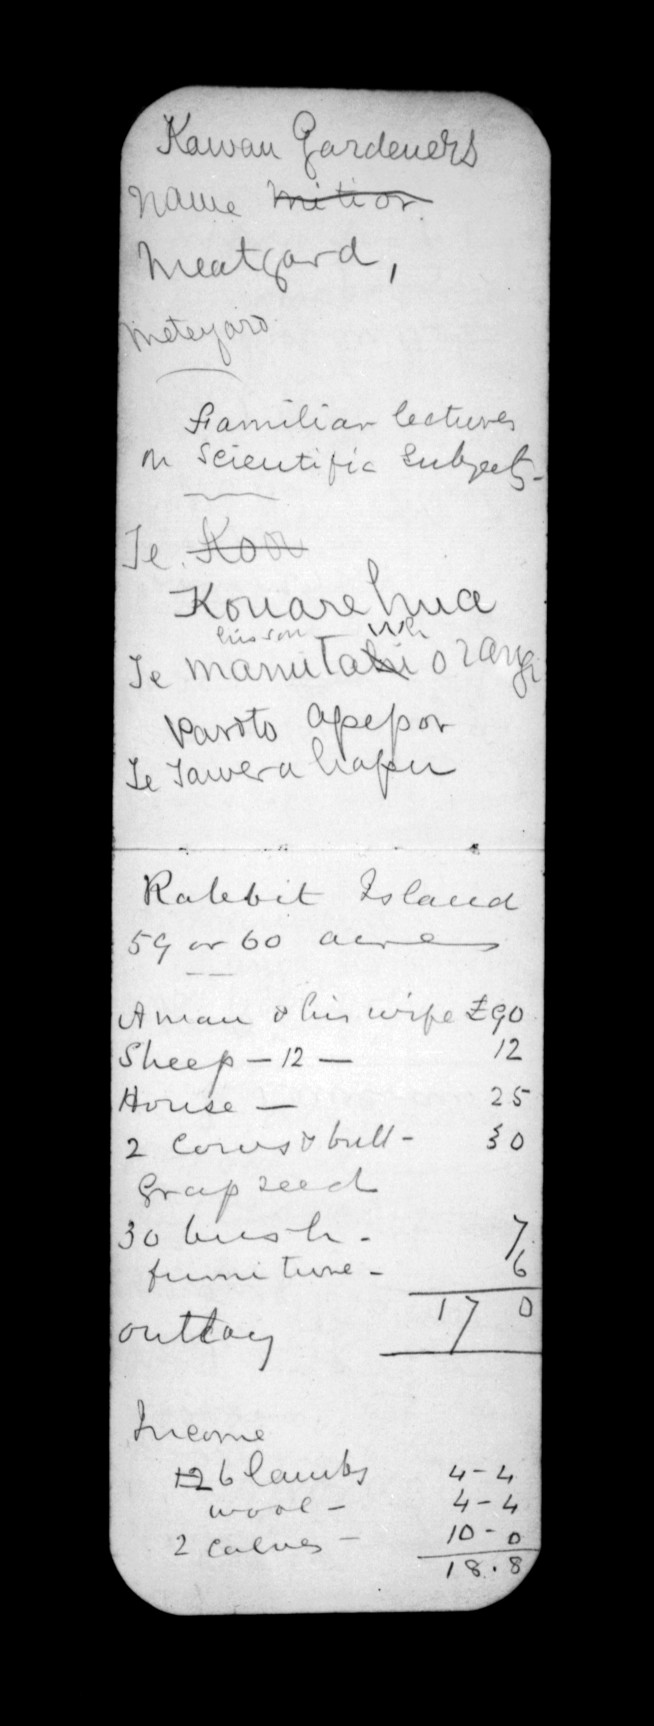 Kawau Gardeners
Name Mitior
Meatyard,
Meteyard
Familiar lectures
on Scientific Subjects-
Te Koa
Kouarehua
his son
Te Manuta o rangi
Paroto apepor
Te Tawera hapu
Rabbit Island
59 or 60 acres
A man & his wife £90
Sheep - 12 - 12
House - 25
2 Cows & bull - 30
Grap seed
30 bush - 7
furniture - 6
outlay 170
Income
6 lambs 4-4
wool - 4-4
2 calves - 10-0
18.8